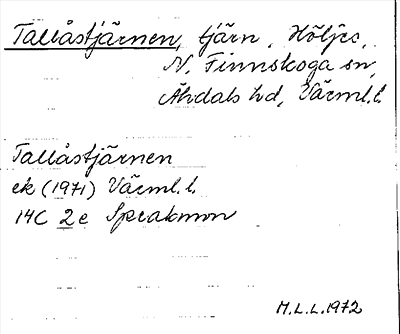 Tallåstjärnen, tjärn, Höljes,
N. Finnskoga sn,
Älvdals hd, Värml. l.
Tallåstjärnen
ek (1971) Värml. l.
14C 2e Speakmon
M.L.L. 1972